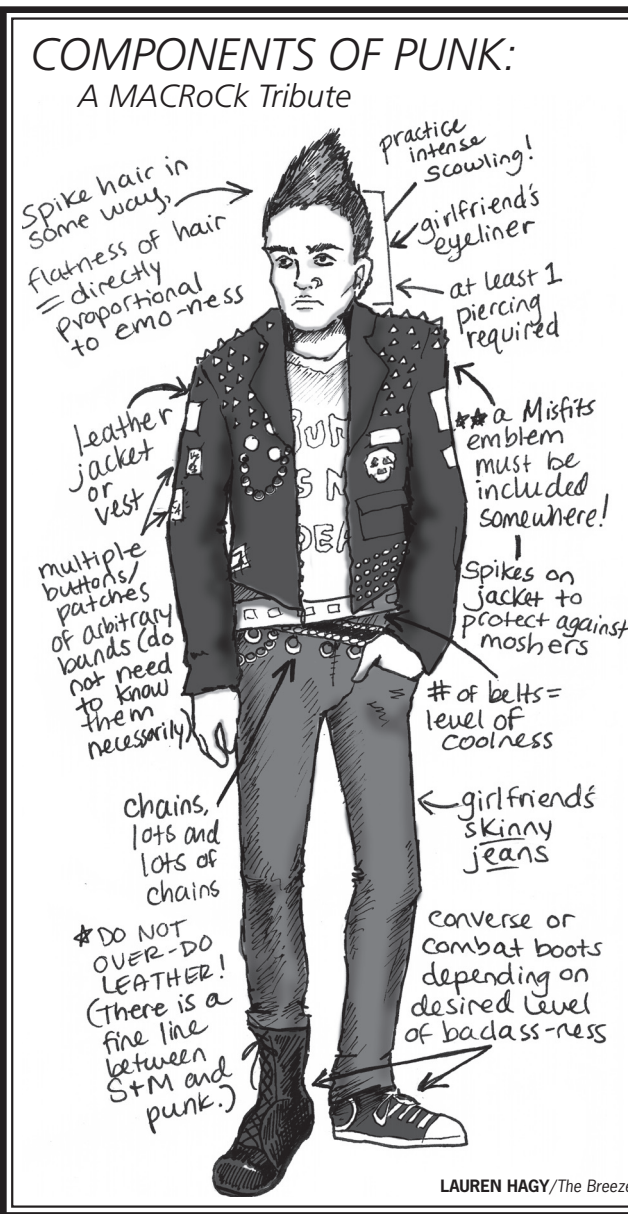 COMPONENTS OF PUNK:
A MACRoCk Tribute
Spike hair in
some way,
flatness of hair
= directly
proportional
to emo-ness
practice
intense
scowling!
girlfriend's
eyeliner
at least 1
piercing
required
leather
jacket
or
vest
** a Misfits
emblem
must be
included
somewhere!
multiple
buttons/
patches
of arbitrary
bands (do
not need
to know
them
necessarily)
Spikes on
jacket to
protect against
moshers
# of belts =
level of
coolness
chains,
lots and
lots of
chains
girlfriend's
skinny
jeans
*DO NOT
OVER-DO
LEATHER!
(There is a
fine line
between
S+M and
punk.)
converse or
combat boots
depending on
desired level
of badass-ness
LAUREN HAGY/The Breeze